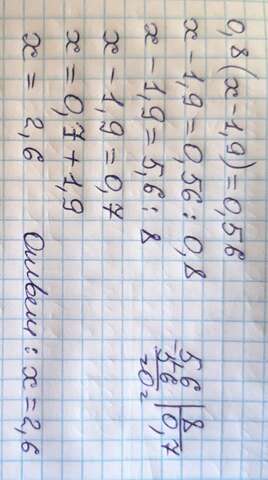 0,8(x-1,9)=0,56
x-1,9=0,56:0,8
x-1,9=5,6:8
x-1,9=0,7
x=0,7+1,9
x=2,6 Ответ: x=2,6
56 | 8
56 | 0,7
=0=